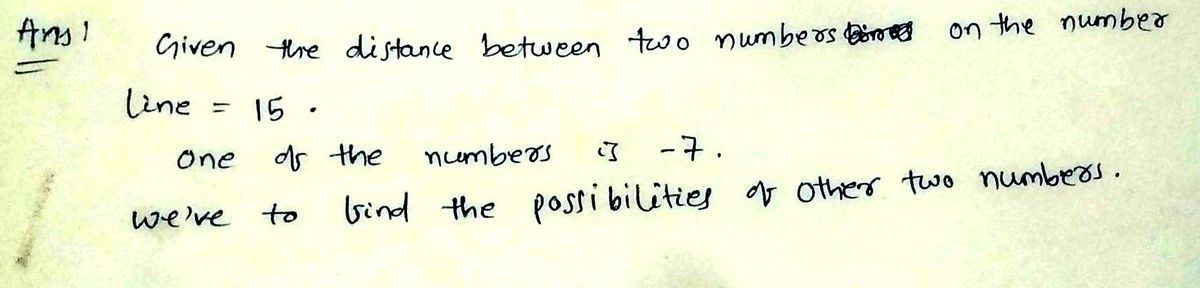 Ans 1 Given the distance between two numbers on the number
line = 15 .
one of the numbers is -7.
we've to find the possibilities of other two numbers.